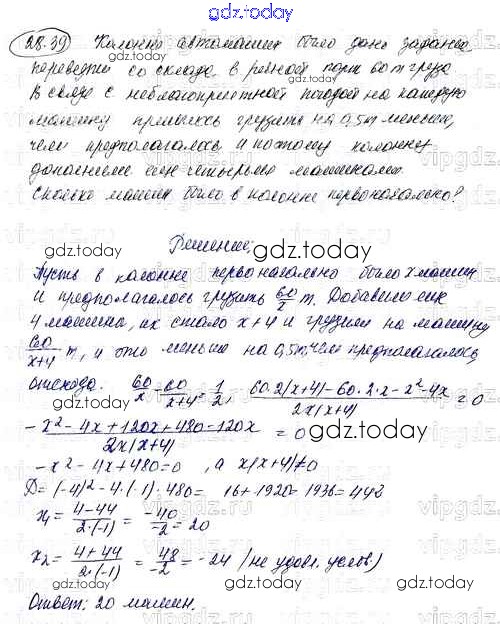 gdz.today
28.39 Колонне автомашин было дано задание
перевезти со склада в речной порт 60 т груза
В связи с неблагоприятной погодой на каждую
машину пришлось грузить на 0,5т меньше,
чем предполагалось и поэтому колонну
дополнили ещё четырьмя машинами.
Сколько машин было в колонне первоначально?
gdz.today
Решение:
gdz.today
Пусть в колонне первоначально было x машин
и предполагалось грузить 60/x т. Добавили ещё
4 машины, их стало x+4 и грузили на машину
60/x+4 т, и это меньше на 0,5т, чем предполагалось,
отсюда. 60/x - 60/x+4 = 1/2, 60·2(x+4)-60·2·x-x²-4x/2x(x+4) = 0
-x²-4x+120x+480-120x/2x(x+4) = 0
-x²-4x+480=0, а x(x+4)≠0
D=(-4)²-4·(-1)·480= 16+1920=1936=44²
x₁= 4-44/2·(-1) = -40/-2 = 20
x₂= 4+44/2·(-1) = 48/-2 = -24 (не удовл. услов)
Ответ: 20 машин.
gdz.today